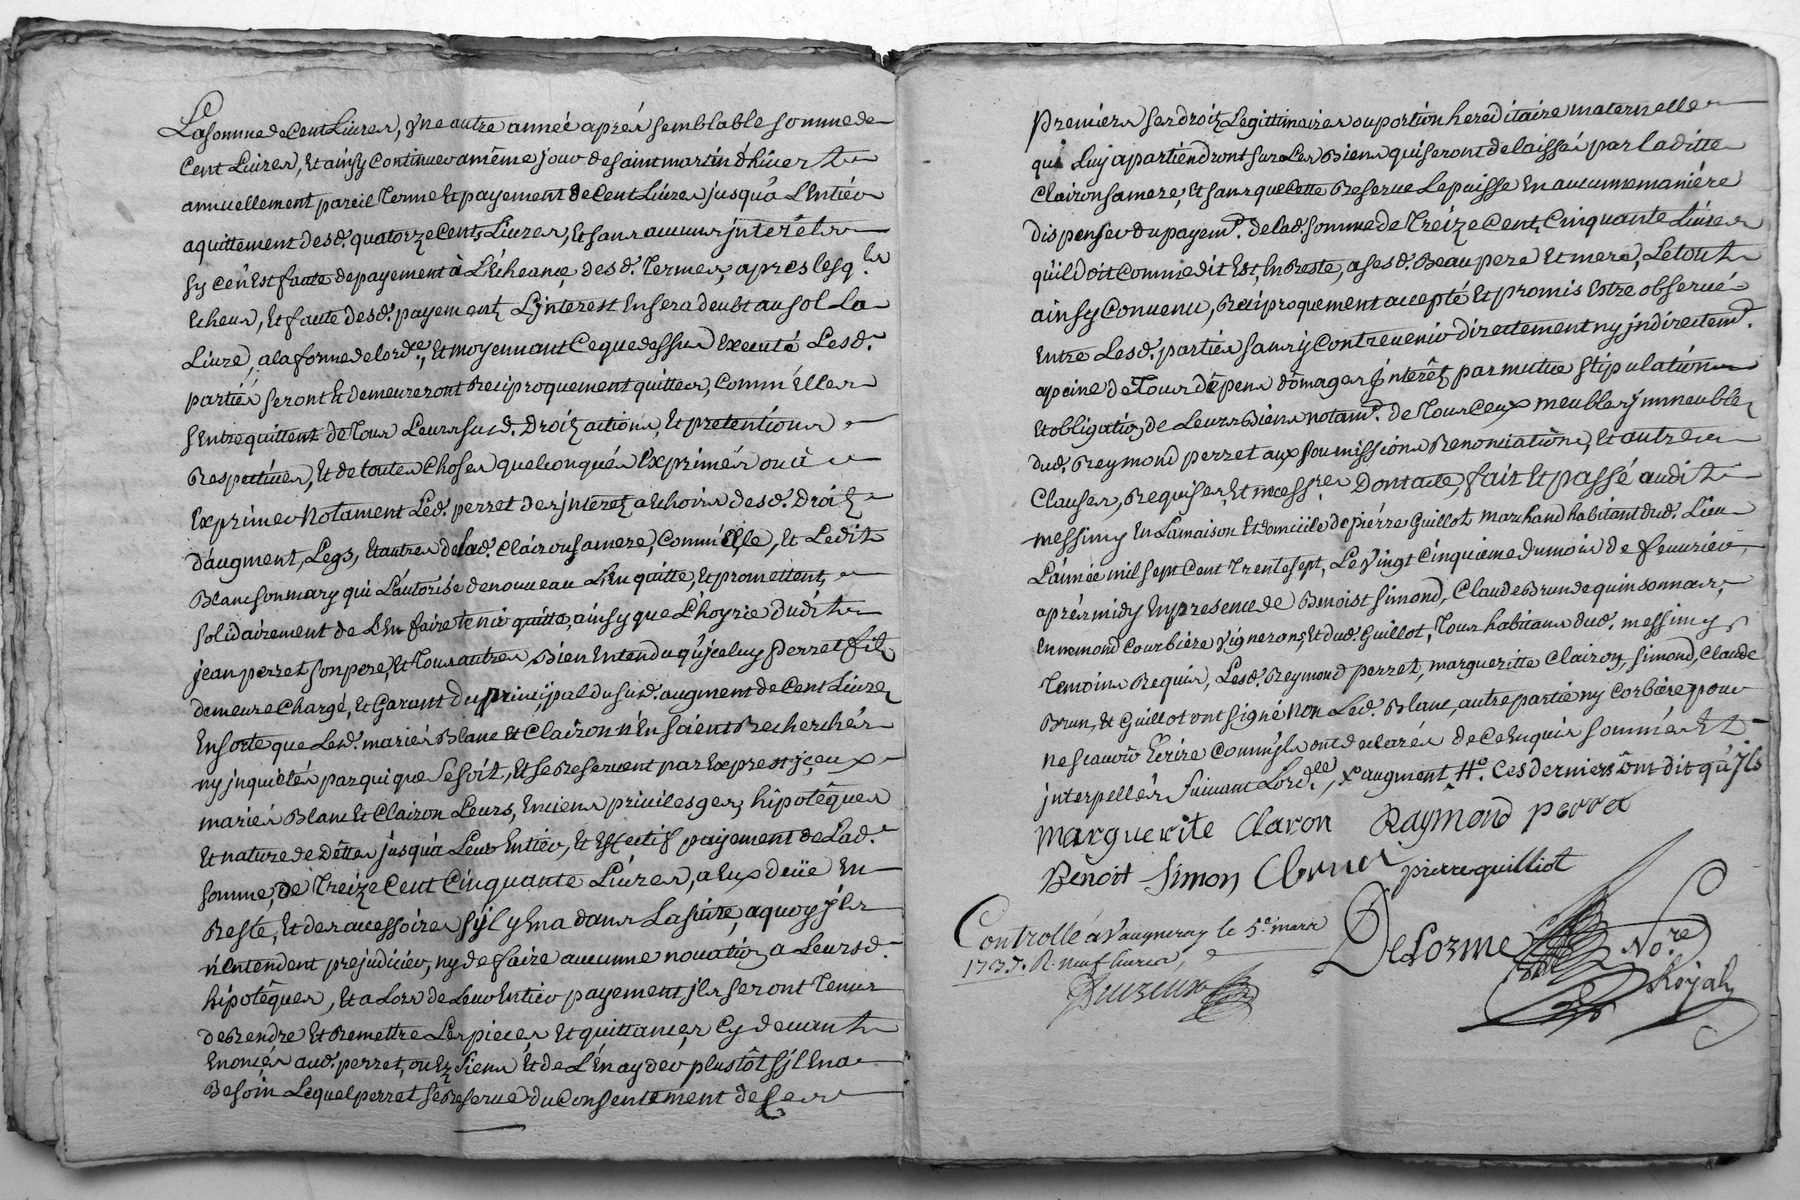 La somme de Cent Livres, yne autre année aprés semblable somme de
Cent Livres, Et ainsy Continuer a même jour de saint martin d'hiver
annuellement pareil Terme Et payement de Cent Livres jusqu'a L'Entiér
aquittement desd. quatorze Cents Livres, Et sans aucuns jnterêts
sy ce n'Est faute de payement à L'Echeance desd. Termes, apres lesq.ls
Echeus, Et faute desd. payements L'jnterest En sera deubt au sol La
Livre, a la forme de lord.ce, Et moyennant Ce que dessus Executé Lesd.
partiés seront Et demeureront Reciproquement quittes, Comm'Elles
s'Entrequittent de Tous Leurs susd. Droitz actions, Et pretentions
Respectives, Et de toutes Choses quelconqués Exprimés ou à
Exprimer Notament Led. perret des jnteretz a Echoirs desd. Droitz
d'augment, Legs, Et autres de lad. Clairon sa mere, Comm'Elle, Et Ledit
Blanc son mary qui L'autorise de nouveau L'En quitte, Et promettent,
solidairement de L'En faire tenir quitte, ainsy que L'hoyrie dudit
jean perret son pere, Et Tous autres, Bien Entendu qu'jceluy perret fils
demeure Chargé, Et Garant du principal du susd. augment de Cent Livres
En sorte que Lesd. mariés Blanc Et Clairon n'En soient Recherchés
ny jnquiétés par qui que se soit, Et se Reservent par Exprest jceux
mariés Blanc Et Clairon Leurs, Enciens privileges, hipotêques
Et nature de Dêttes jusqu'à Leur Entier, Et Effectif paÿement de Lad.
somme, de Treize Cent Cinquante Livres, a Eux deüe En
Reste, Et des accessoires s'jl y En a dans La suitte, a quoy jls
n'Entendent prejudicier, ny de faire aucunne novation a Leursd.
hipotêques, Et a Lors de Leur Entier payement jls seront Tenus
de Rendre Et Remettre Les pieces, Et quittances, Cy devant
Enoncés aud. perret, ou Es Siens Et de L'En ayder plustôt s'jl En a
Besoin Lequel perret se Reserve du Consentement de ses
premiers ses droitz Legittimaires ou portion hereditaire maternelle
qui Luy apartiendront sur Les Biens qui seront delaissés par laditte
Clairon sa mere, Et sans que Cette Reserve Le puisse En aucunne maniére
dispenser du payem.t de lad. somme de Treize Cents Cinquante Livres
qu'il doit Comme dit Est, En Reste, a sesd. Beau pere Et mere, Le tout
ainsy Convenu, Reciproquement accepté Et promis Estre observé
Entre Lesd. parties sans y Contrevenir directement ny jndirectem.t
a peine de Tous dépens domages jnterêtz par mutue stipulation
Et obligation de Leurs Biens notam.t de Tous Ceux meubles jmmeubles
dud. Reymond perret aux soumissions Renonciations, Et autres
Clauses, Requises, Et necess.res Dont acte, fait Et passé audit
messimy En La maison Et domicile de piérre Guillot marchand habitant dud. Lieu
L'année mil sept Cent Trente sept, Le vingt Cinquieme du mois de fevrier
aprés midy En presence de Benoist Simond, Claude Brun de quinsonnas,
Ennemond Courbière vignerons, Et dud. Guillot, Tous habitans dud. messimy
Temoins Requis, Lesd. Reymond perret, margueritte Clairon, Simond, Claude
Brun, Et Guillot ont signé Non Led. Blanc, autre partie ny Corbière pour
ne scavoir Ecrire Comm'jls ont declarés de Ce Enquis sommés Et
jnterpellés suivant Lord.ce, x augment H.o Ces derniers ont dit qu'jls
Marguerite Claron Raymond perret
Benoit Simon C brun pierre guilliot
Controllé à Vaugneray le 5.e mars
1737. R. neuf livres,
Delorme No.re
Royal